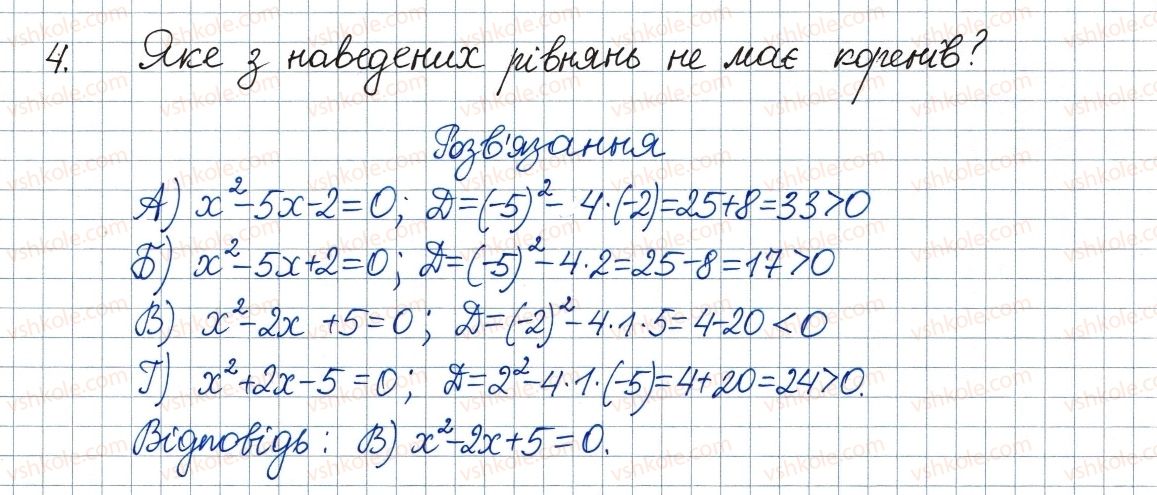 4. Яке з наведених рівнянь не має коренів?
Розв'язання
А) x²-5x-2=0; Д=(-5)²- 4·(-2)=25+8=33>0
Б) x²-5x+2=0; Д=(-5)²-4·2=25-8=17>0
В) x²-2x+5=0; Д=(-2)²-4·1·5=4-20<0
Г) x²+2x-5=0; Д=2²-4·1·(-5)=4+20=24>0.
Відповідь: В) x²-2x+5=0.
vshkole.com